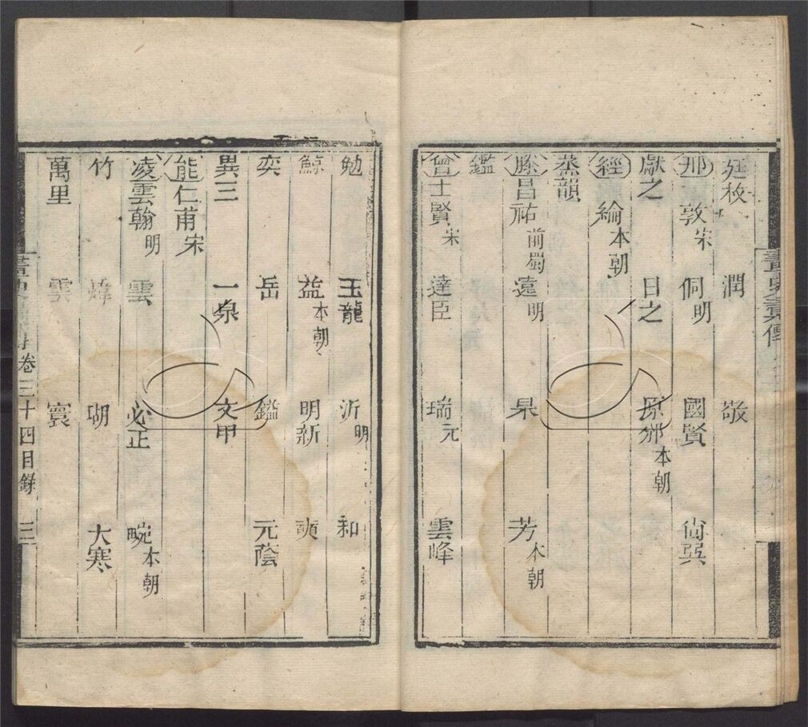 廷枚 潤 敬
邢 敦宋 侗明 國賢 尙巽
獻之 日之 原邠本朝
經 綸本朝
蒸韻
滕昌祐前蜀 遠明 杲 芳本朝
鑑
曾士賢宋 達臣 瑞元 雲峰
畫史彙傳
勉 玉龍 沂明 和
鯨 益本朝 明新
奕 岳 鑑 元蔭
異三 一泉 文甲
能仁甫宋
凌雲翰明 雲 必正 畹本朝
竹 瑚 大寒
萬里 雲 寰
畫史 卷三十四目錄 三